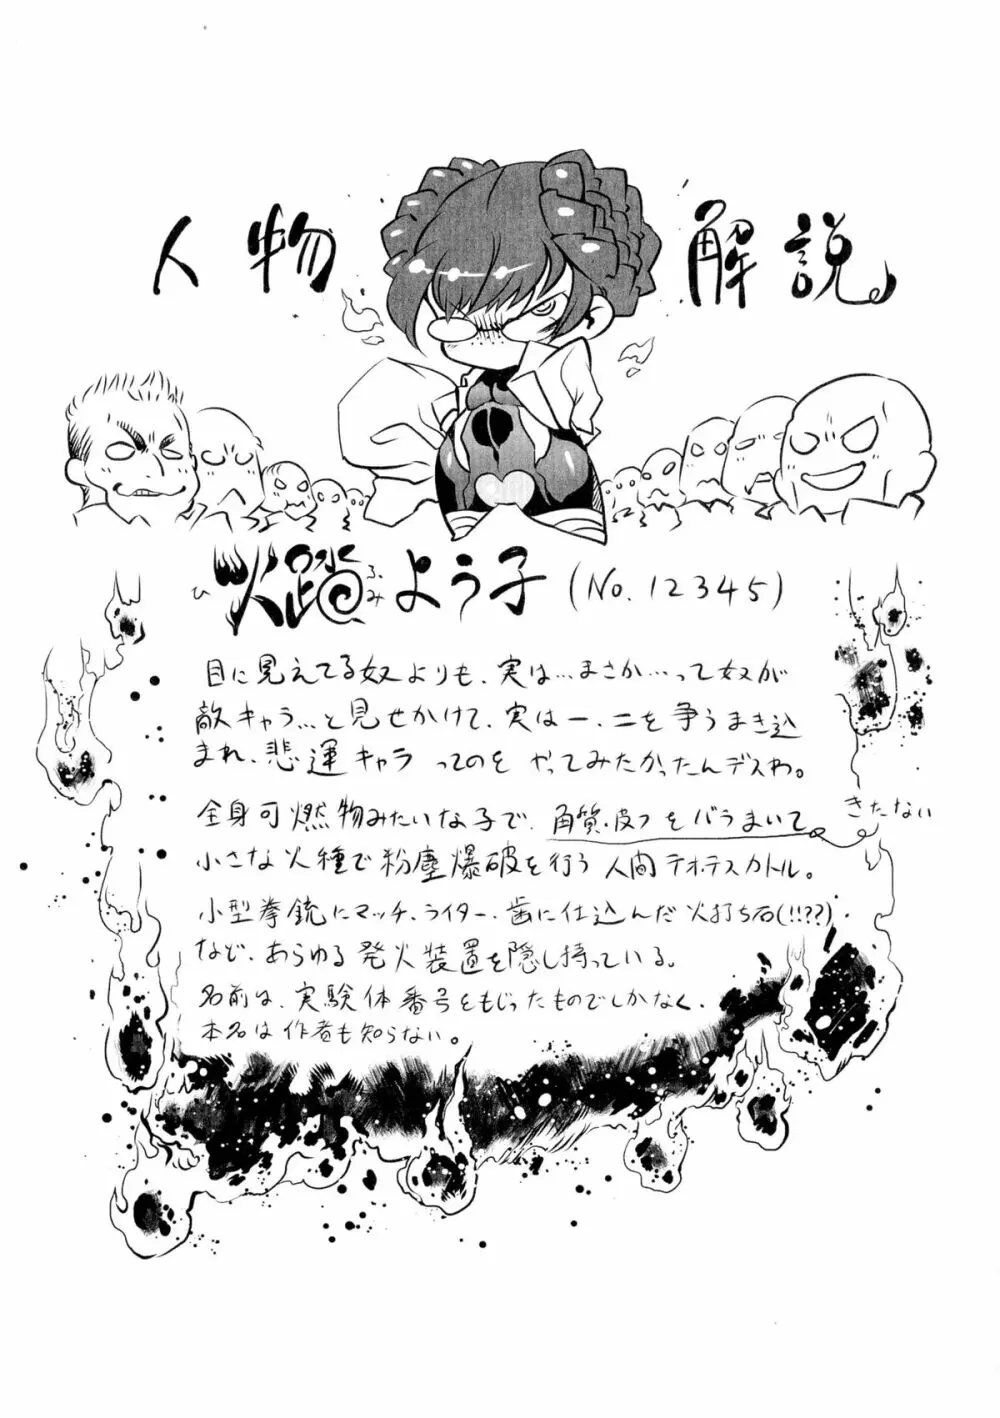 人物解説。
火踏よう子 (No.12345)
ひ
ふみ
目に見えてる奴よりも、実は…まさか…って奴が
敵キャラ…と見せかけて、実は一、二を争うまき込
まれ、悲運キャラってのをやってみたかったんデスわ。
全身可燃物みたいな子で、角質・皮フをバラまいて。
きたない
小さな火種で粉塵爆破を行う人間テオ・テスカトル。
小型拳銃にマッチ、ライター、歯に仕込んだ火打ち石(!!??)
など、あらゆる発火装置を隠し持っている。
名前は、実験体番号をもじったものでしかなく、
本名は作者も知らない。